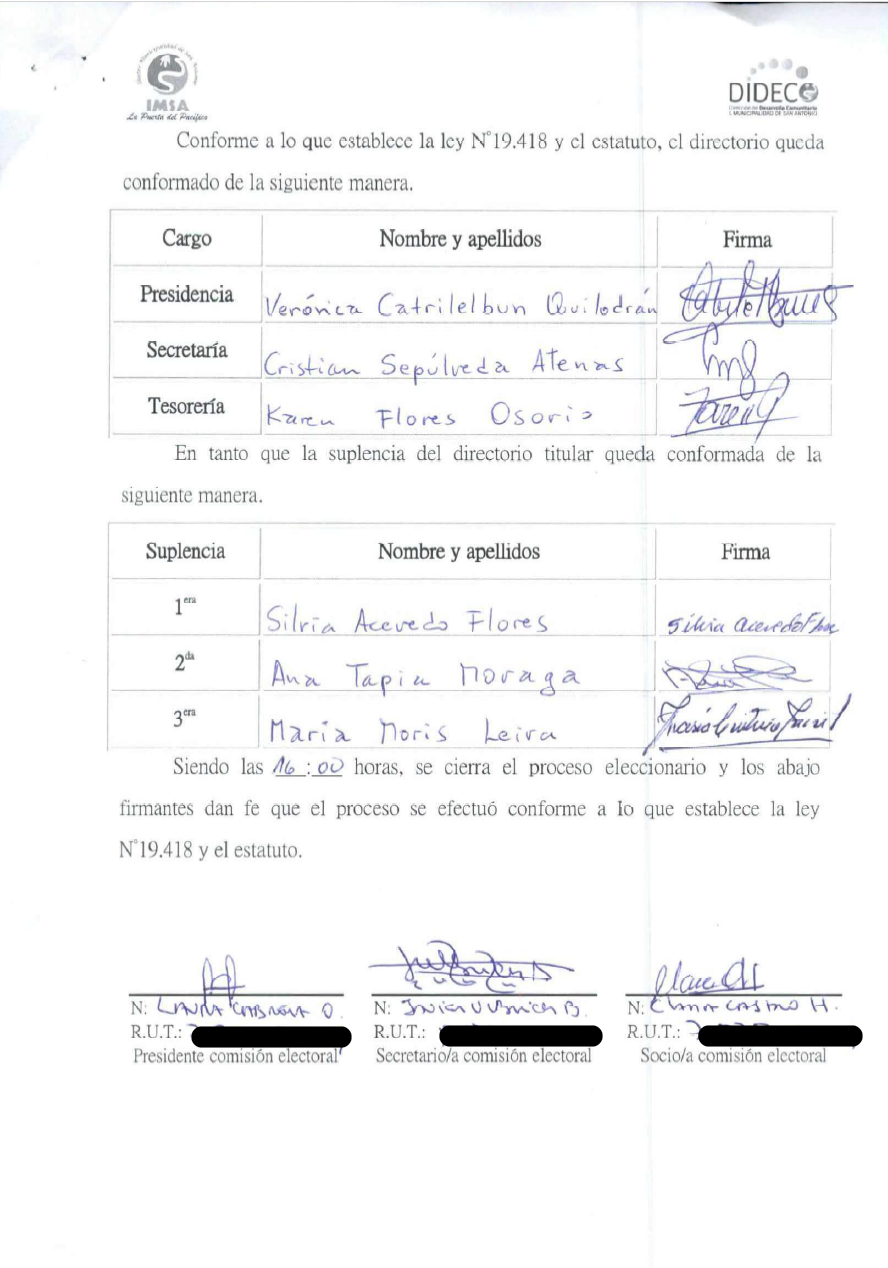 IMSA
La Puerta del Pacífico
DIDECO
Dirección de Desarrollo Comunitario
I. MUNICIPALIDAD DE SAN ANTONIO
Conforme a lo que establece la ley N°19.418 y el estatuto, el directorio queda
conformado de la siguiente manera.
Cargo Nombre y apellidos Firma
Presidencia Verónica Catrilelbun Quilodrán
Secretaría Cristian Sepúlveda Atenas
Tesorería Karen Flores Osorio
En tanto que la suplencia del directorio titular queda conformada de la
siguiente manera.
Suplencia Nombre y apellidos Firma
1era Silvia Acevedo Flores Silvia Acevedo
2da Ana Tapia Moraga
3era María Moris Leiva
Siendo las 16:00 horas, se cierra el proceso eleccionario y los abajo
firmantes dan fe que el proceso se efectuó conforme a lo que establece la ley
N°19.418 y el estatuto.
N: LAURA O. N: B. N: CASTRO H.
R.U.T.: R.U.T.: R.U.T.:
Presidente comisión electoral Secretario/a comisión electoral Socio/a comisión electoral